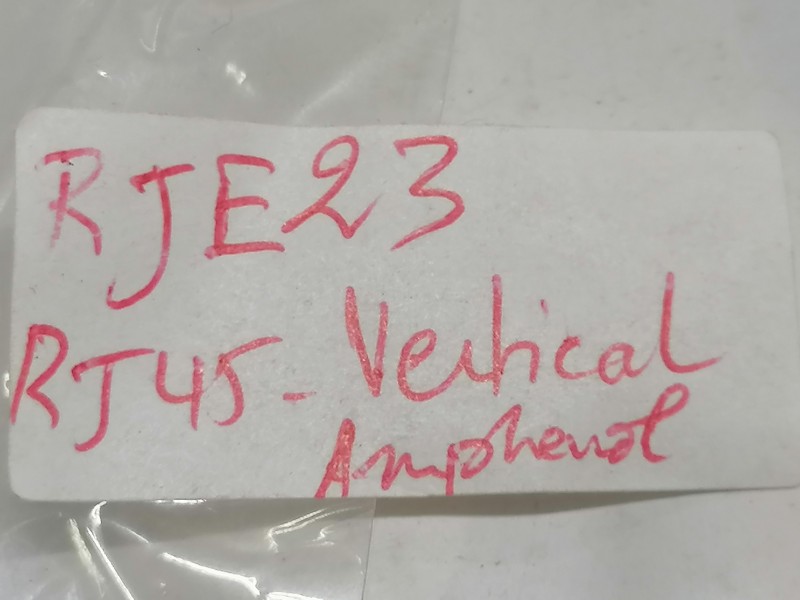 RJE23
RJ45-Vertical
Amphenol